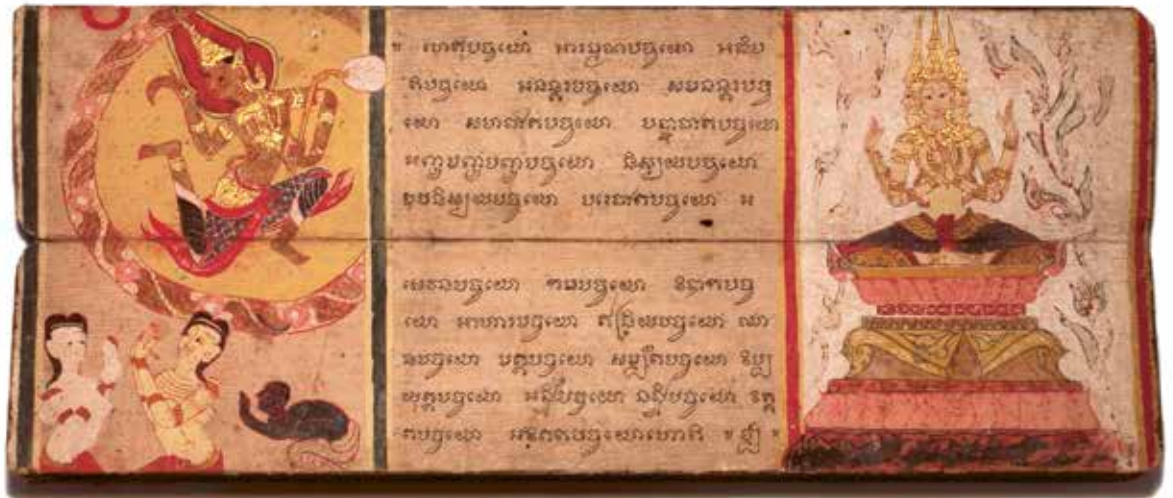 ហេតុបច្ចយោ អារម្មណបច្ចយោ អធិប
តិបច្ចយោ អនន្តរបច្ចយោ សមនន្តរបច្ច
យោ សហជាតបច្ចយោ បច្ឆាជាតបច្ចយោ
អញ្ញមញ្ញបច្ចយោ និស្សយបច្ចយោ
ឧបនិស្សយបច្ចយោ បរេជាតបច្ចយោ អ
សេវនបច្ចយោ កម្មបច្ចយោ វិបាកបច្ច
យោ អាហារបច្ចយោ ឥន្ទ្រិយបច្ចយោ ឈា
នបច្ចយោ មគ្គបច្ចយោ វិប្ប
យុត្តបច្ចយោ អត្ថិបច្ចយោ នត្ថិបច្ចយោ វិគ
តបច្ចយោ អវិគតបច្ចយោហោតិ